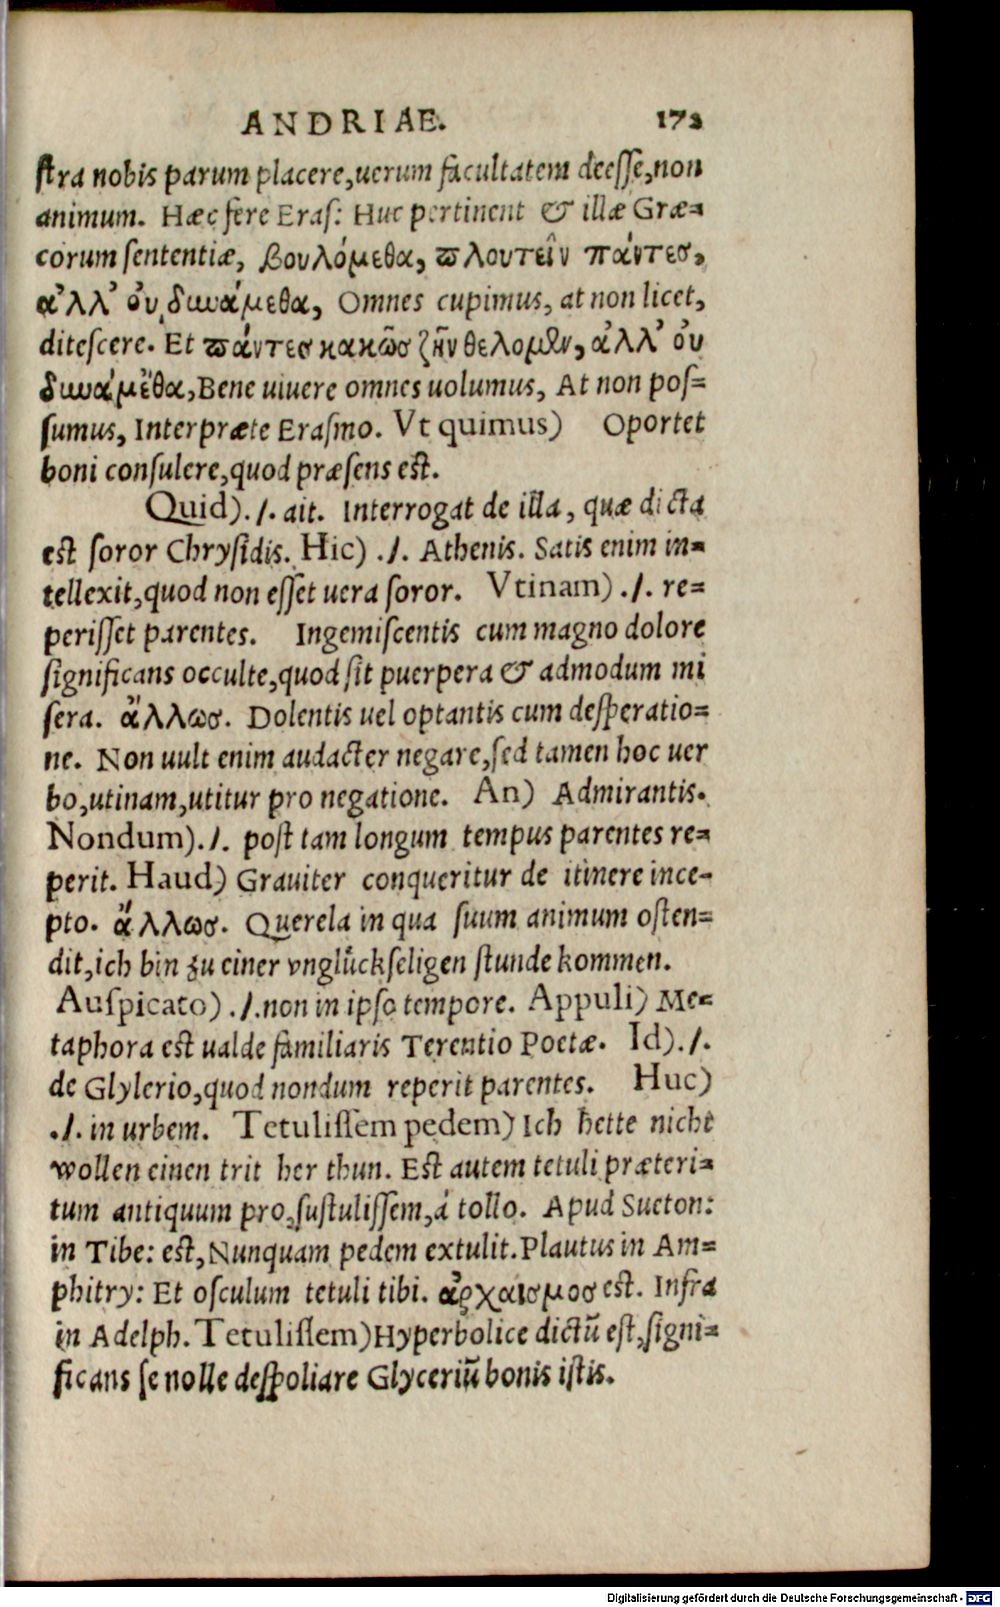 ANDRIAE. 172
ſtra nobis parum placere,uerum facultatem deeſſe,non
animum. Hæc fere Eraſ: Huc pertinent & illæ Græ=
corum ſententiæ, βουλόμεθα, ϖλουτεῖν πάντεσ,
ἀλλ' οὐ δυνάμεθα, Omnes cupimus, at non licet,
diteſcere. Et ϖάντεσ κακῶσ ζῆν θελομῶν, ἀλλ' οὐ
δυνάμεθα,Bene uiuere omnes uolumus, At non poſ=
ſumus, Interpræte Eraſmo. Vt quimus) Oportet
boni conſulere,quod præſens eſt.
Quid)./. ait. Interrogat de illa, quæ dicta
eſt ſoror Chryſidis. Hic) ./. Athenis. Satis enim in=
tellexit,quod non eſſet uera ſoror. Vtinam) ./. re=
periſſet parentes. Ingemiſcentis cum magno dolore
ſignificans occulte,quod ſit puerpera & admodum mi
ſera. ἄλλωσ. Dolentis uel optantis cum deſperatio=
ne. Non uult enim audacter negare,ſed tamen hoc uer
bo,utinam,utitur pro negatione. An) Admirantis.
Nondum)./. poſt tam longum tempus parentes re=
perit. Haud) Grauiter conqueritur de itinere ince=
pto. ἄλλωσ. Querela in qua ſuum animum oſten=
dit,ich bin zu einer vnglückſeligen ſtunde kommen.
Auſpicato) ./.non in ipſo tempore. Appuli) Me=
taphora eſt ualde familiaris Terentio Poetæ. Id)./.
de Glylerio,quod nondum reperit parentes. Huc)
./. in urbem. Tetuliſſem pedem) Ich hette nicht
wollen einen trit her thun. Eſt autem tetuli præteri=
tum antiquum pro,ſuſtuliſſem,á tollo. Apud Sueton:
in Tibe: eſt,Nunquam pedem extulit.Plautus in Am=
phitry: Et oſculum tetuli tibi. ἀρχαισμοσ eſt. Infra
in Adelph. Tetuliſſem)Hyperbolice dictũ eſt,ſigni=
ficans ſe nolle deſpoliare Glyceriũ bonis iſtis.
Digitalisierung gefördert durch die Deutsche Forschungsgemeinschaft - DFG